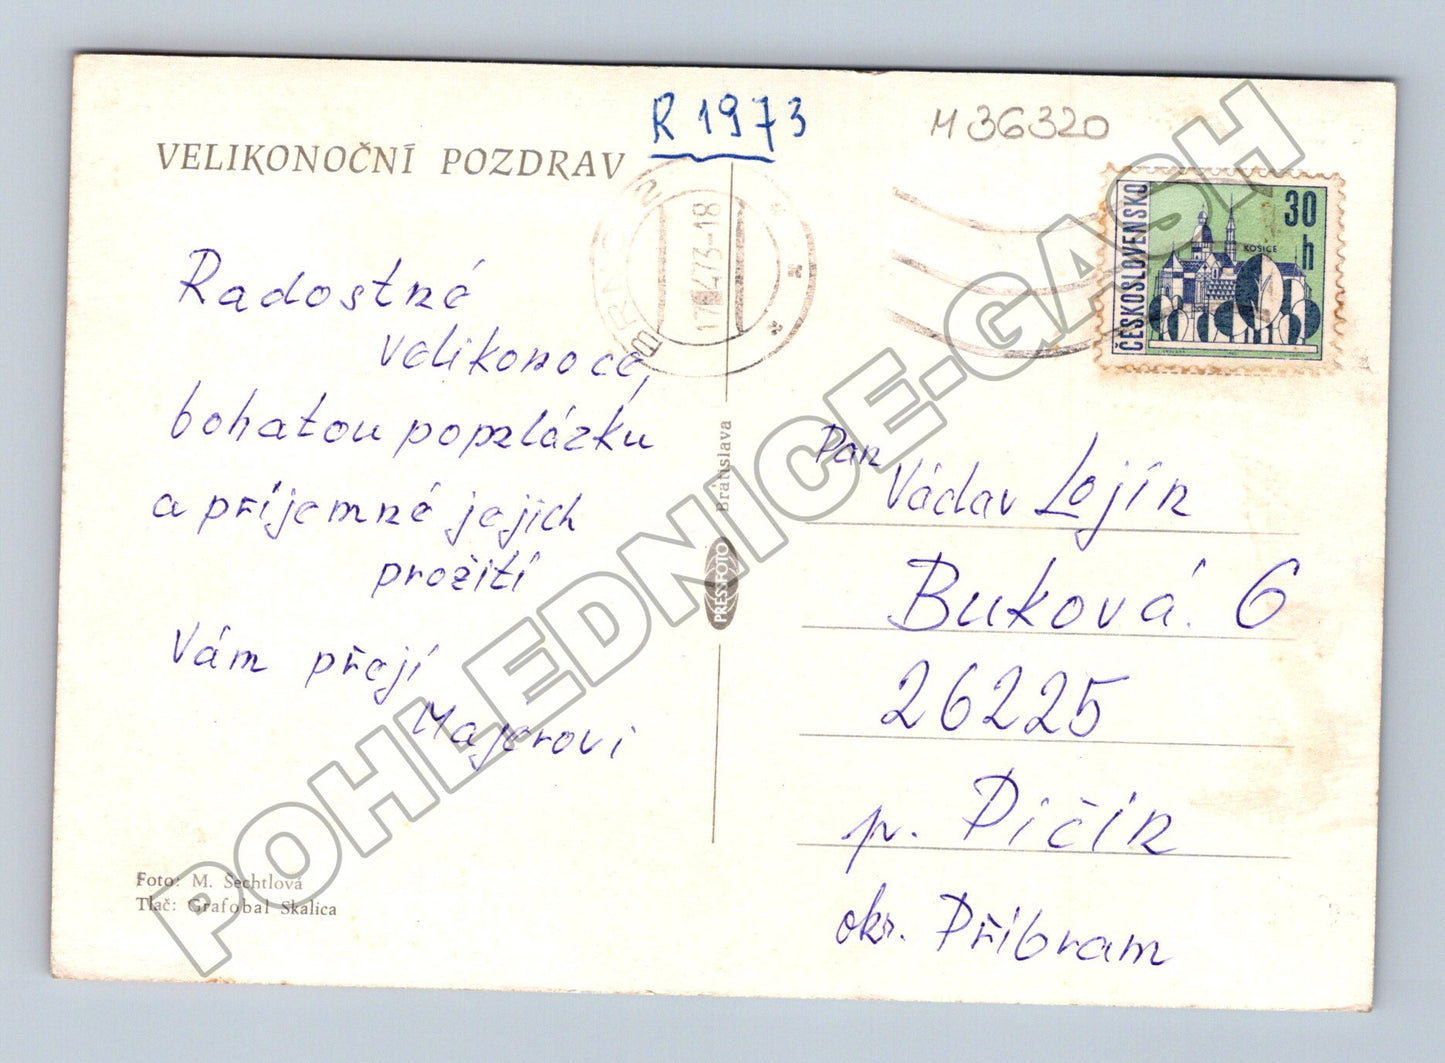 R 1973
M 36320
VELIKONOČNÍ POZDRAV
17. 4.73-18
ČESKOSLOVENSKO
30
h
KOŠICE
Radostné
velikonoce,
bohatou pomlázku
a příjemné jejich
prožití
Vám přejí
Majerovi
Bratislava
PRESSFOTO
Pan
Václav Lojín
Buková 6
26225
p. Pičín
okr. Příbram
Foto: M. Šechtlová
Tlač: Grafobal Skalica
POHLEDNICE-GASH